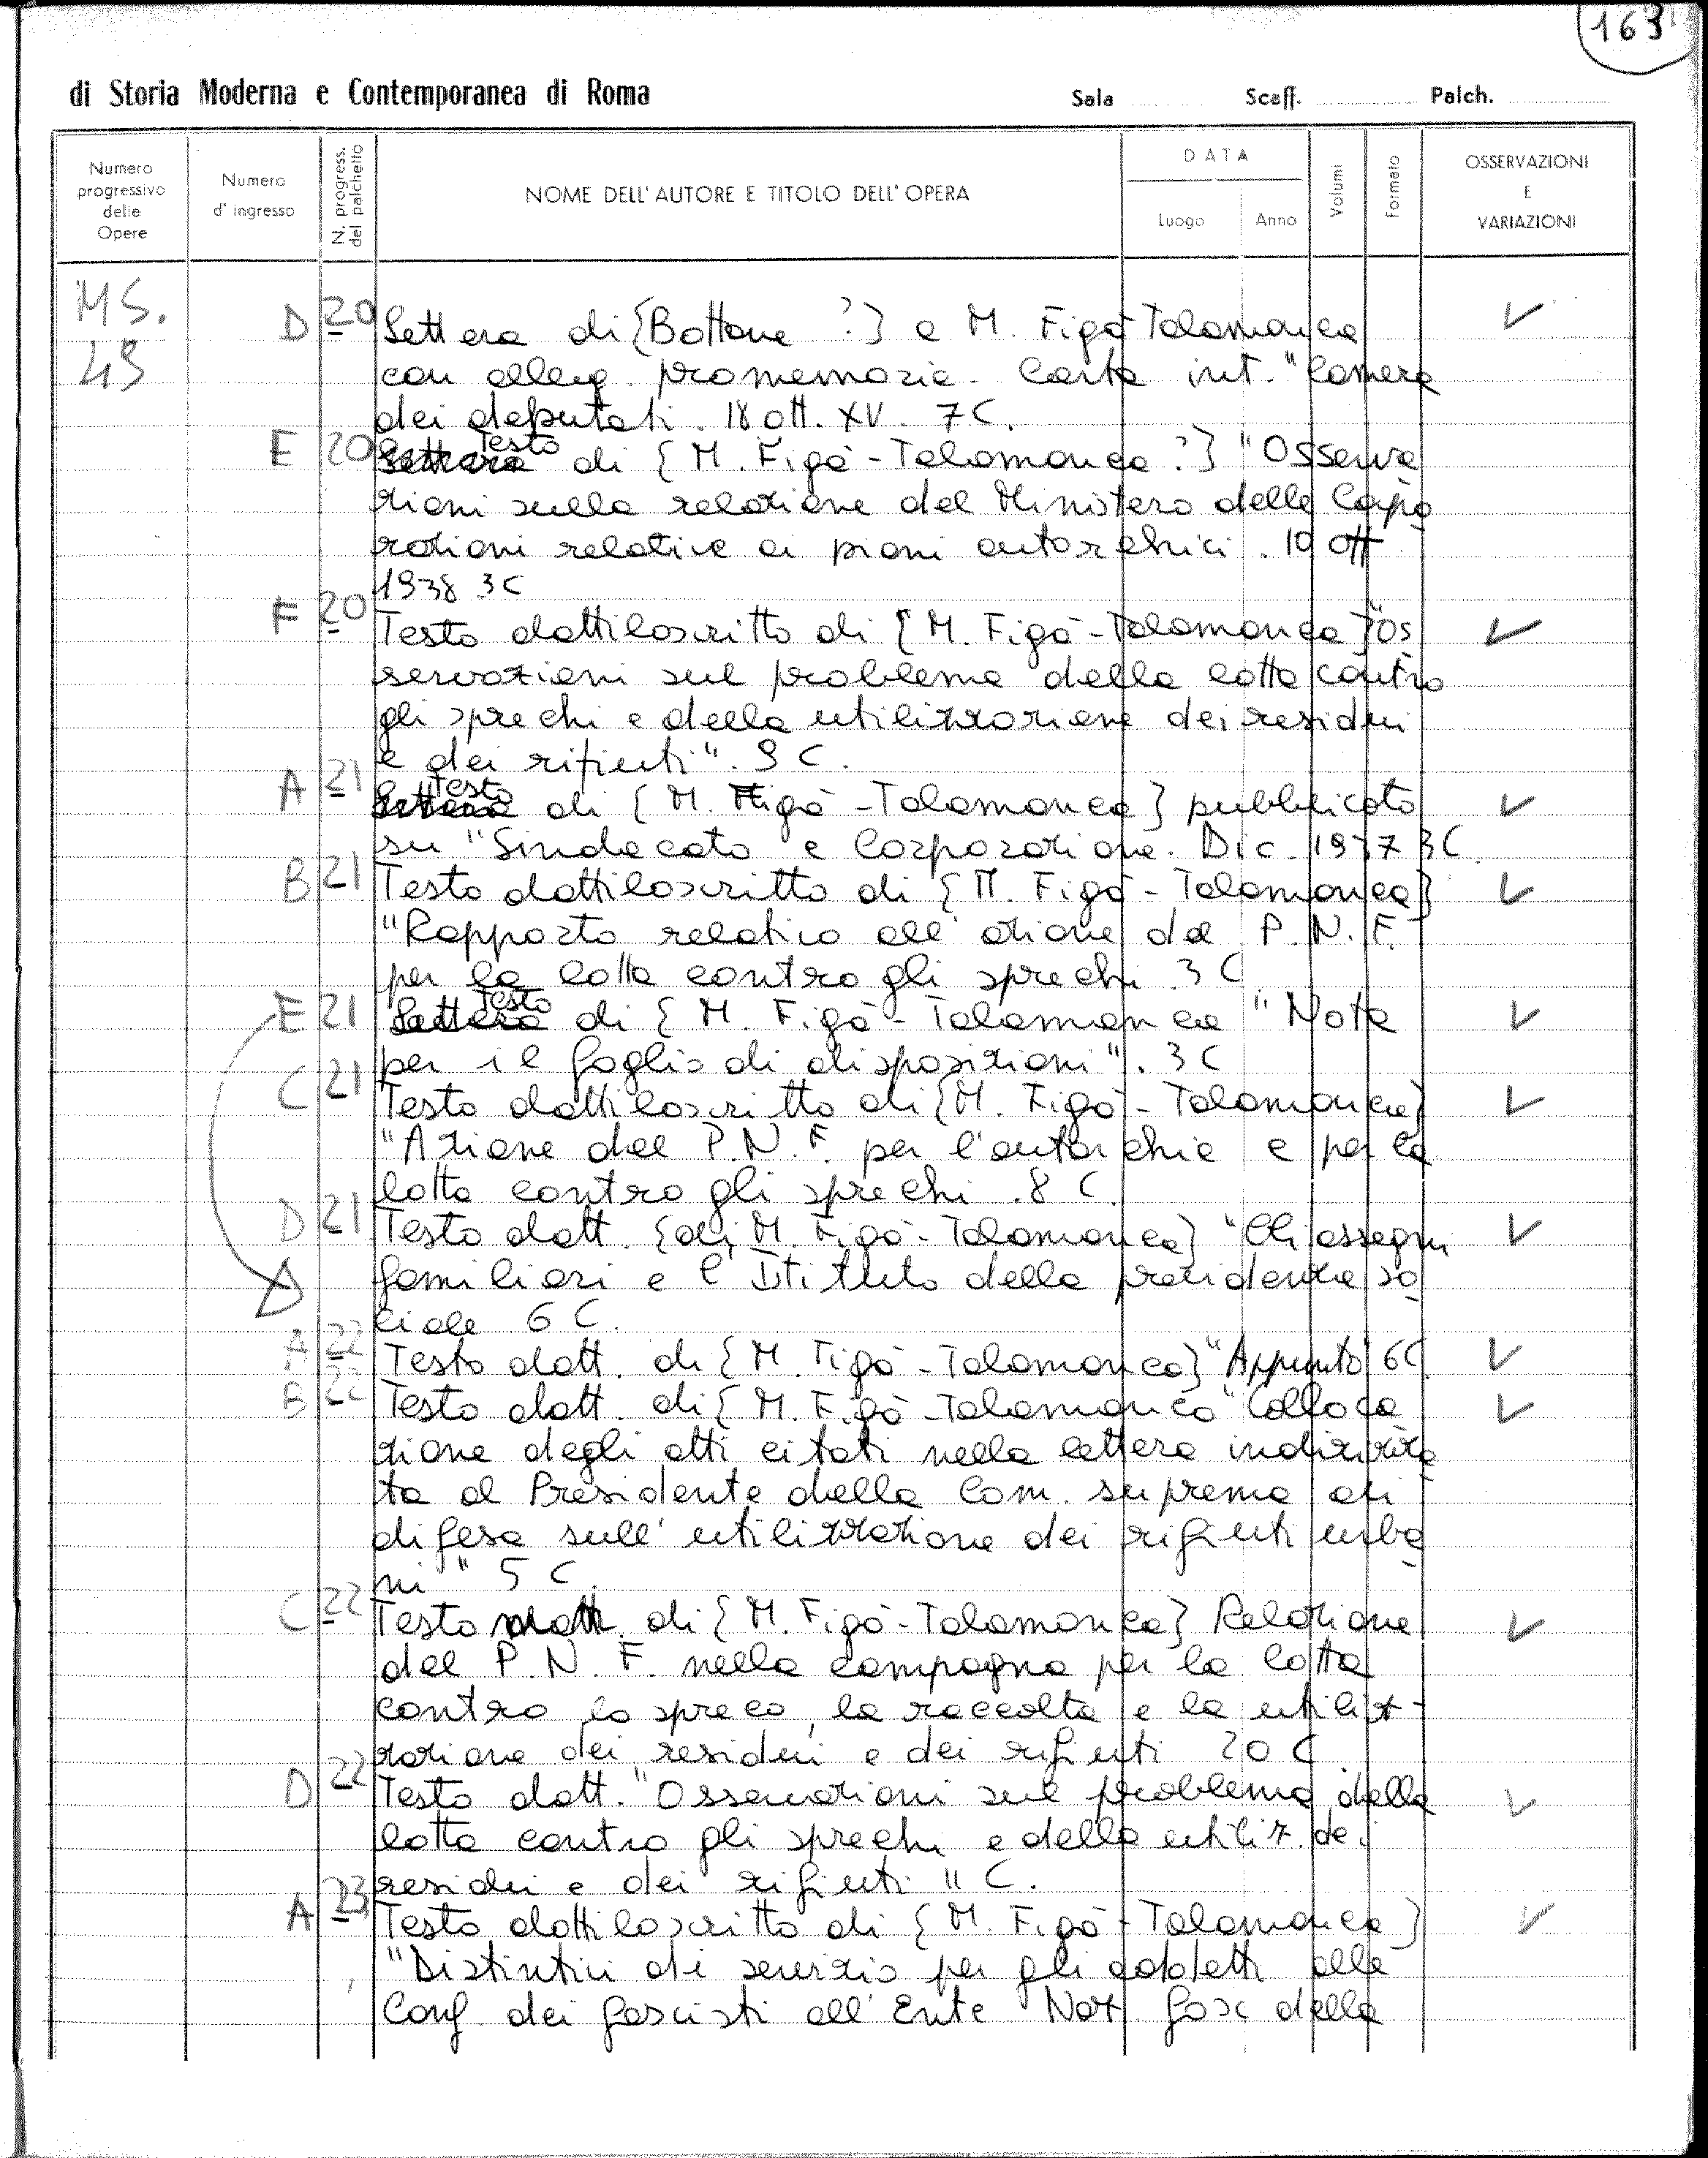 163
di Storia Moderna e Contemporanea di Roma Sala Scaff. Palch.
Numero progressivo delle Opere
Numero d'ingresso
N. progress. del palchetto
NOME DELL'AUTORE E TITOLO DELL'OPERA
DATA
Luogo
Anno
Volumi
Formato
OSSERVAZIONI E VARIAZIONI
MS. 43
D 20 Lettera di {Bottone ?} a M. Figà Talamanca
con alleg. promemoria. Carta int. "Camera
dei deputati. 18 ott. XV. 7 C.
E 20 Lettera Testo di {M. Figà-Talamanca ?} "Osserva
zioni sulla relazione del Ministero delle Corpo
razioni relative ai piani autarchici. 10 ott
1938 3 C
F 20 Testo dattiloscritto di {M. Figà-Talamanca} "Os
servazioni sul problema della lotta contro
gli sprechi e della utilizzazione dei residui
e dei rifiuti". 9 C.
A 21 Lettera Testo di {M. Figà-Talamanca} pubblicato
su "Sindacato e Corporazione. Dic. 1937 3 C.
B 21 Testo dattiloscritto di {M. Figà-Talamanca}
"Rapporto relativo all'azione del P.N.F.
per la lotta contro gli sprechi 3 C
E 21 Lettera Testo di {M. Figà-Talamanca "Nota
per il foglio di disposizioni". 3 C
C 21 Testo dattiloscritto di {M. Figà-Talamanca}
"Azione del P.N.F. per l'autarchia e per la
lotta contro gli sprechi. 8 C.
D 21 Testo datt. {di M. Figà-Talamanca} "Gli assegni
familiari e l'Istituto della previdenza so
ciale 6 C.
A 22 Testo datt. di {M. Figà-Talamanca} "Appunto 6 C
B 22 Testo datt. di {M. Figà-Talamanca "Colloca
zione degli atti citati nella lettera indirizza
ta al Presidente della Com. suprema di
difesa sull'utilizzazione dei rifiuti urba
ni" 5 C.
C 22 Testo datt. di {M. Figà-Talamanca} Relazione
del P.N.F. nella campagna per la lotta
contro lo spreco, la raccolta e la utiliz-
zazione dei residui e dei rifiuti 20 C
D 22 Testo datt. "Osservazioni sul problema della
lotta contro gli sprechi e della utiliz. dei
residui e dei rifiuti 11 C.
A 23 Testo dattiloscritto di {M. Figà-Talamanca}
"Distintivi di servizio per gli addetti alla
Conf. dei fascisti all'Ente Naz fasc della